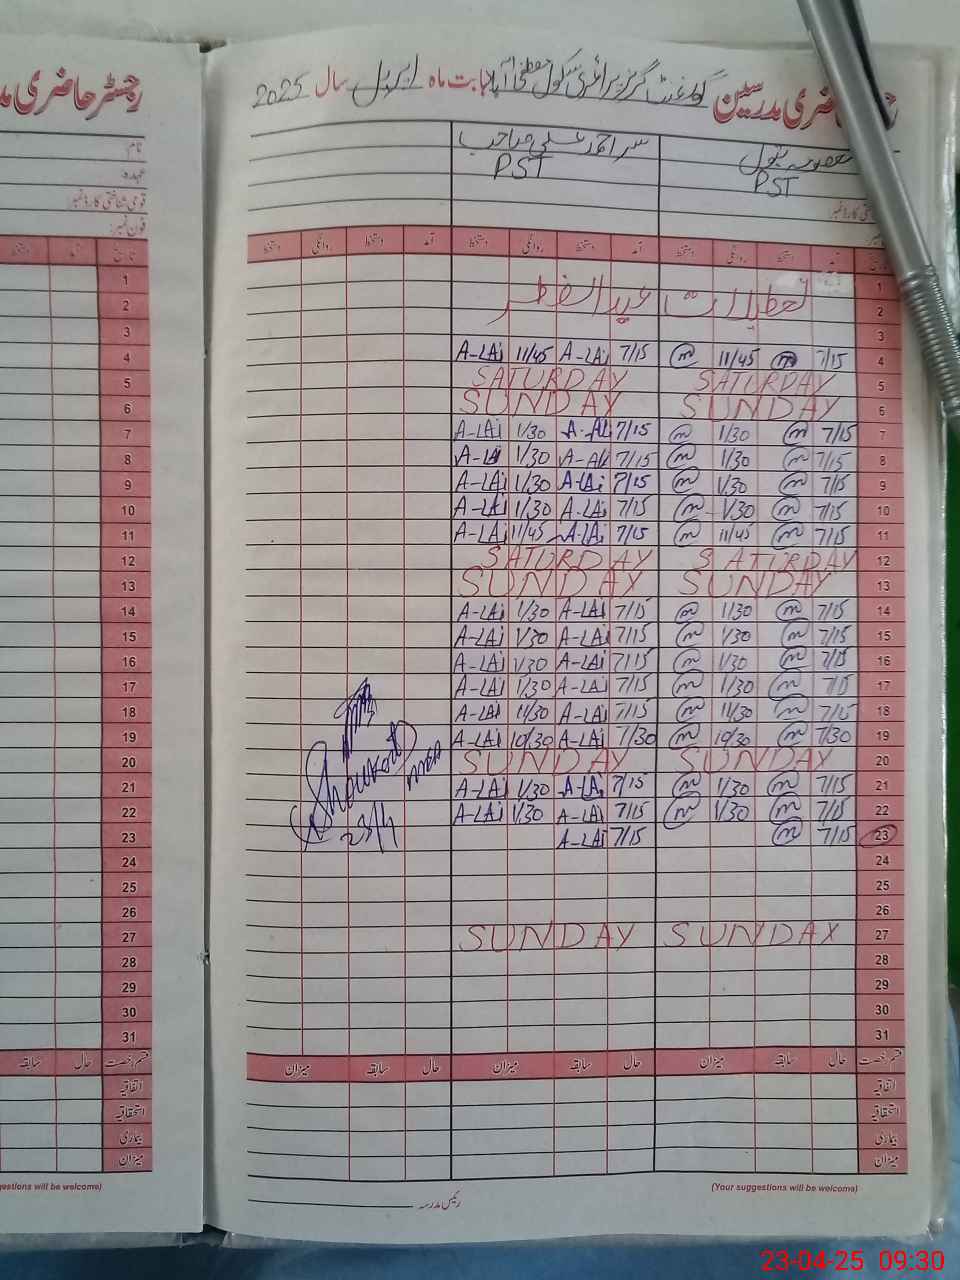 رجسٹر حاضری مدرسین گورنمنٹ گرلز پرائمری سکول مصطفیٰ آباد بابت ماہ اپریل سال 2025
معصومہ بتول سر احمد علی صاحب
PST PST
تاریخ آمد دستخط روانگی دستخط آمد دستخط روانگی دستخط آمد دستخط روانگی دستخط
1
2 تعطیلات عید الفطر
3
A-LAi 11/45 A-LAi 7/15 m 11/45 m 7/15 4
SATURDAY SATURDAY 5
SUNDAY SUNDAY 6
A-LAi 1/30 A-ALi 7/15 m 1/30 m 7/15 7
A-LAi 1/30 A-ALi 7/15 m 1/30 m 7/15 8
A-LAi 1/30 A-LAi 7/15 m 1/30 m 7/15 9
A-LAi 1/30 A-LAi 7/15 m 1/30 m 7/15 10
A-LAi 11/45 A-LAi 7/15 m 11/45 m 7/15 11
SATURDAY SATURDAY 12
SUNDAY SUNDAY 13
A-LAi 1/30 A-LAi 7/15 m 1/30 m 7/15 14
A-LAi 1/30 A-LAi 7/15 m 1/30 m 7/15 15
A-LAi 1/30 A-LAi 7/15 m 1/30 m 7/15 16
A-LAi 1/30 A-LAi 7/15 m 1/30 m 7/15 17
A-LAi 11/30 A-LAi 7/15 m 11/30 m 7/15 18
A-LAi 10/30 A-LAi 7/30 m 10/30 m 7/30 19
SUNDAY SUNDAY 20
A-LAi 1/30 A-LAi 7/15 m 1/30 m 7/15 21
A-LAi 1/30 A-LAi 7/15 m 1/30 m 7/15 22
A-LAi 7/15 m 7/15 23
24
25
26
SUNDAY SUNDAY 27
28
29
30
31
Showkat
MEA
23/4
قسم رخصت حال سابقہ میزان حال سابقہ میزان حال سابقہ میزان
اتفاقیہ
استحقاقیہ
بیماری
میزان
(Your suggestions will be welcome)
رئیس مدرسہ
رجسٹر حاضری مد
نام
عہدہ
قومی شناختی کارڈ نمبر
فون نمبر:
تاریخ آمد دستخط
1
2
3
4
5
6
7
8
9
10
11
12
13
14
15
16
17
18
19
20
21
22
23
24
25
26
27
28
29
30
31
قسم رخصت حال سابقہ
اتفاقیہ
استحقاقیہ
بیماری
میزان
gestions will be welcome)
23-04-25 09:30